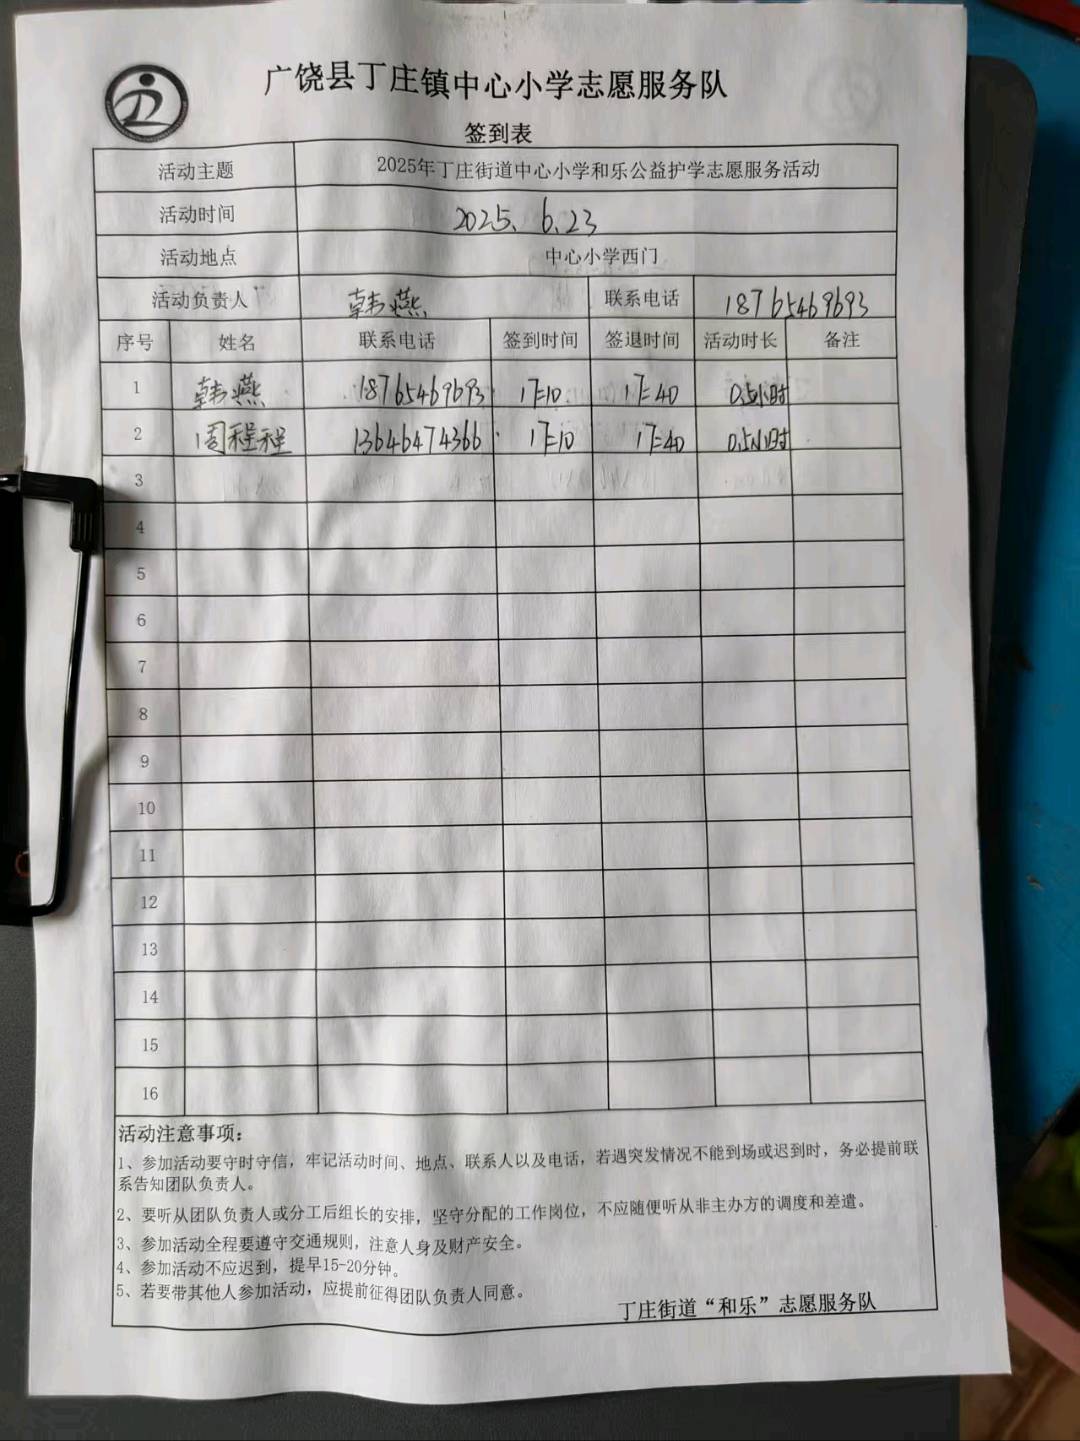 广饶县丁庄镇中心小学志愿服务队
签到表
活动主题 2025年丁庄街道中心小学和乐公益护学志愿服务活动
活动时间 2025.6.23
活动地点 中心小学西门
活动负责人 韩燕 联系电话 18765469693
序号 姓名 联系电话 签到时间 签退时间 活动时长 备注
1 韩燕 18765469693 17:10 17:40 0.5小时
2 周程程 13646474366 17:10 17:40 0.5小时
3
4
5
6
7
8
9
10
11
12
13
14
15
16
活动注意事项：
1、参加活动要守时守信，牢记活动时间、地点、联系人以及电话，若遇突发情况不能到场或迟到时，务必提前联
系告知团队负责人。
2、要听从团队负责人或分工后组长的安排，坚守分配的工作岗位，不应随便听从非主办方的调度和差遣。
3、参加活动全程要遵守交通规则，注意人身及财产安全。
4、参加活动不应迟到，提早15-20分钟。
5、若要带其他人参加活动，应提前征得团队负责人同意。
丁庄街道“和乐”志愿服务队